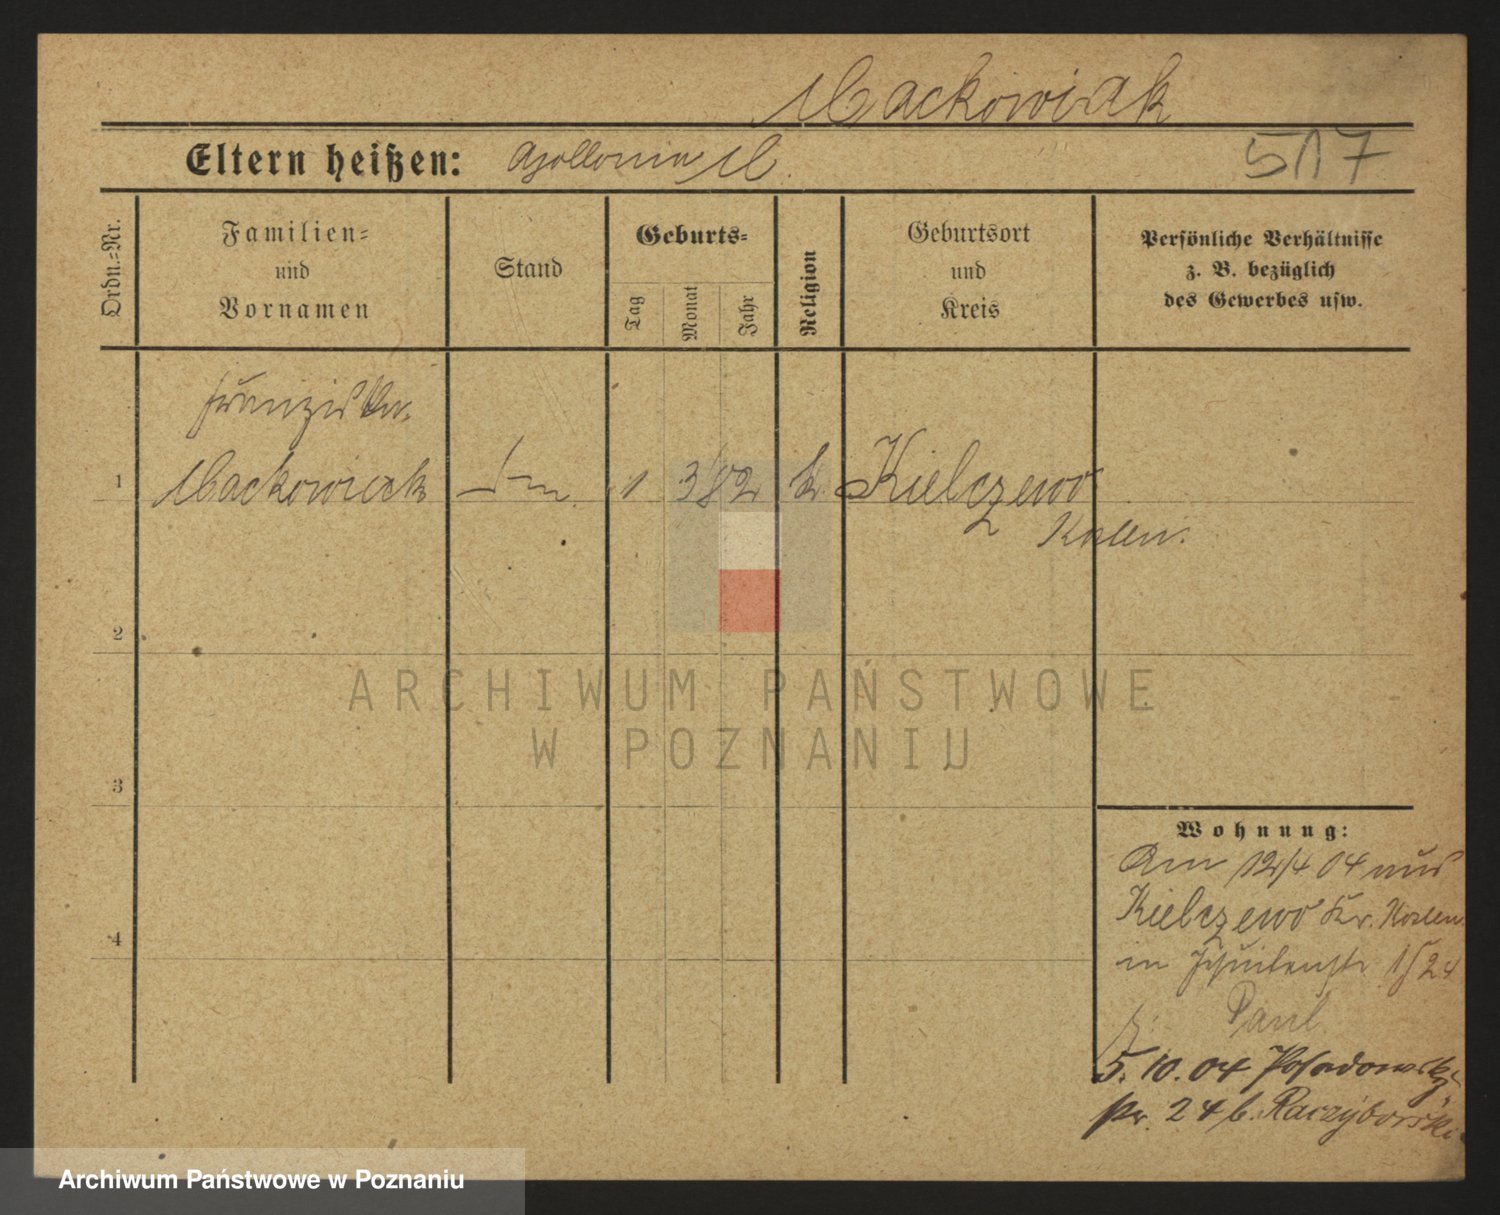 Mackowiak
Eltern heißen: Apollonia M.
517
Ordn.-Nr.
Familien-
und
Vornamen
Stand
Geburts-
Tag
Monat
Jahr
Religion
Geburtsort
und
Kreis
Persönliche Verhältnisse
z. B. bezüglich
des Gewerbes usw.
Franziska
1 Mackowiak 1 3 82 k Kielczewo
Kosten.
2
ARCHIWUM PAŃSTWOWE
W POZNANIU
3
Wohnung:
Am 12/4 04 aus
Kielczewo Kr. Kosten
4
in Jesuitenstr 24
Paul
5. 10. 04 Posadowsky
str. 24 b. Raczyborski
Archiwum Państwowe w Poznaniu